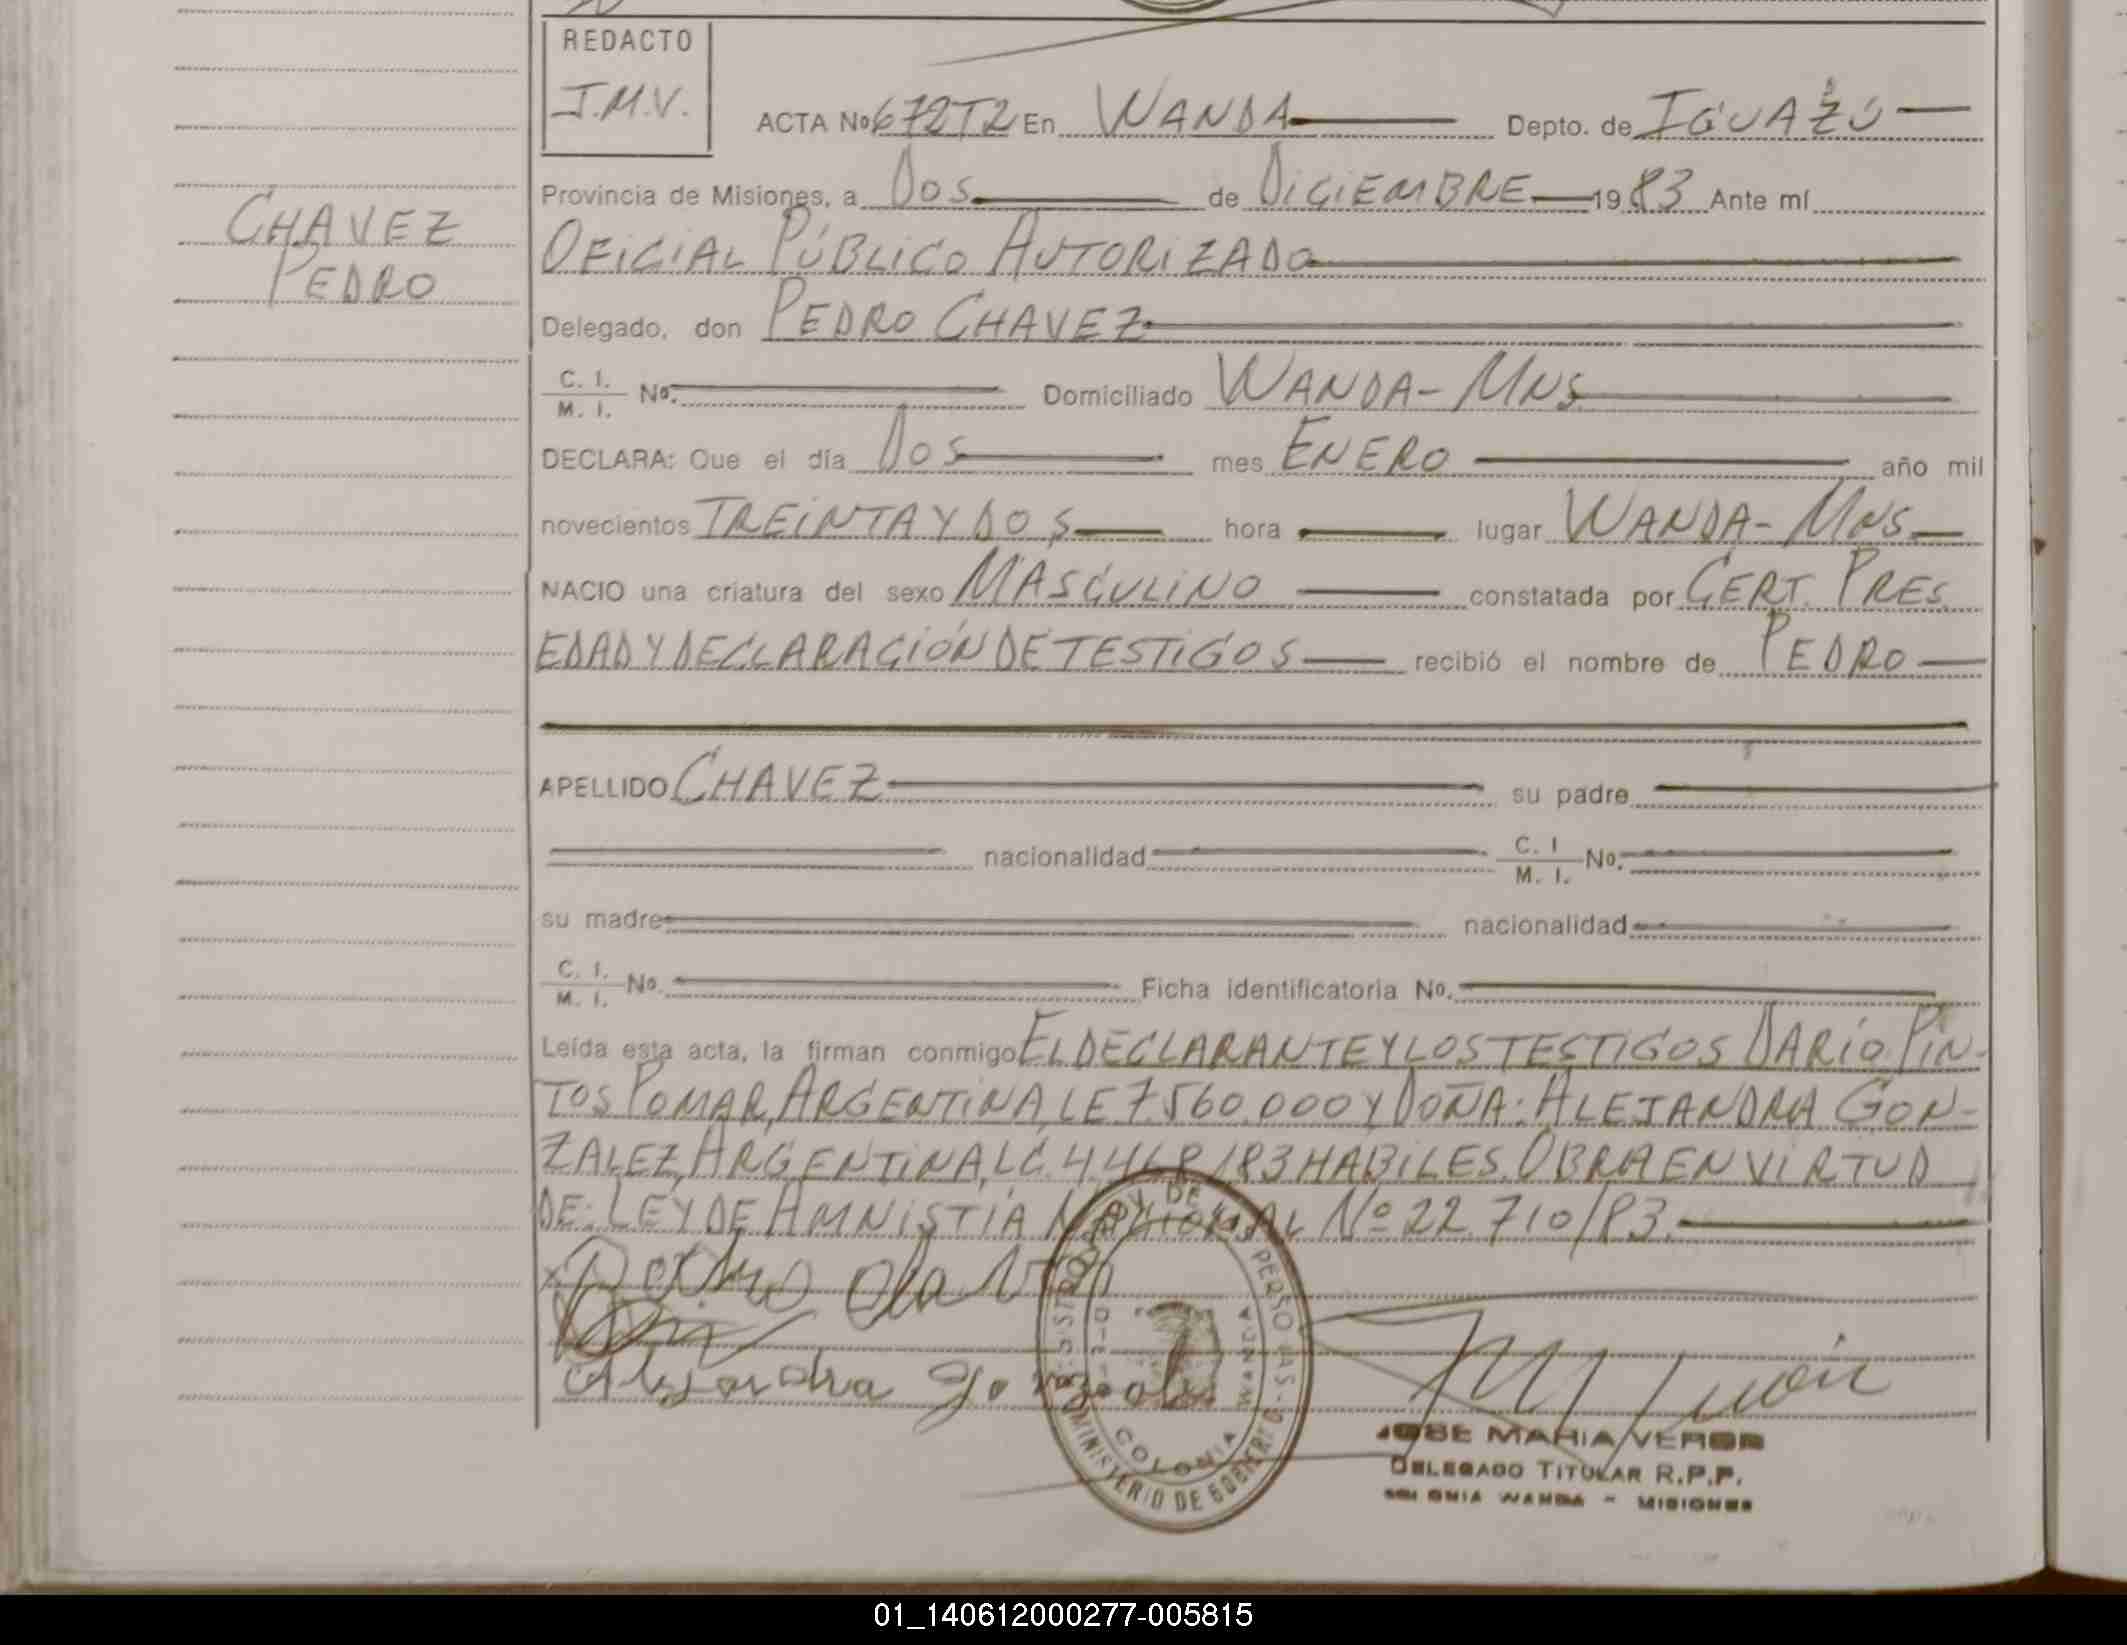 REDACTO
J.M.V.
ACTA Nº 672T2 En WANDA Depto. de IGUAZÚ
Provincia de Misiones, a DOS de DICIEMBRE 1983 Ante mí
CHAVEZ
PEDRO
OFICIAL PÚBLICO AUTORIZADO
Delegado, don PEDRO CHAVEZ
C. I. M. I. No. Domiciliado WANDA - MNS
DECLARA: Que el día DOS mes ENERO año mil
novecientos TREINTA Y DOS hora lugar WANDA - MNS
NACIO una criatura del sexo MASCULINO constatada por CERT. PRES
EDAD Y DECLARACIÓN DE TESTIGOS recibió el nombre de PEDRO
APELLIDO CHAVEZ su padre
nacionalidad C. I M. I. No.
su madre nacionalidad
C. I. M. I. No. Ficha identificatoria No.
Leída esta acta, la firman conmigo EL DECLARANTE Y LOS TESTIGOS DARÍO PIN-
TOS POMAR, ARGENTINA, LE 7.560.000 Y DOÑA: ALEJANDRA GON-
ZALEZ, ARGENTINA, LC. 4.468.183 HABILES. OBRA EN VIRTUD
DE: LEY DE AMNISTÍA NACIONAL Nº 22.710/83.
Pedro
Alejandra
MINISTERIO DE GOBIERNO
COLONIA WANDA
JOSE MARIA VERON
DELEGADO TITULAR R.P.P.
COLONIA WANDA - MISIONES
01_140612000277-005815